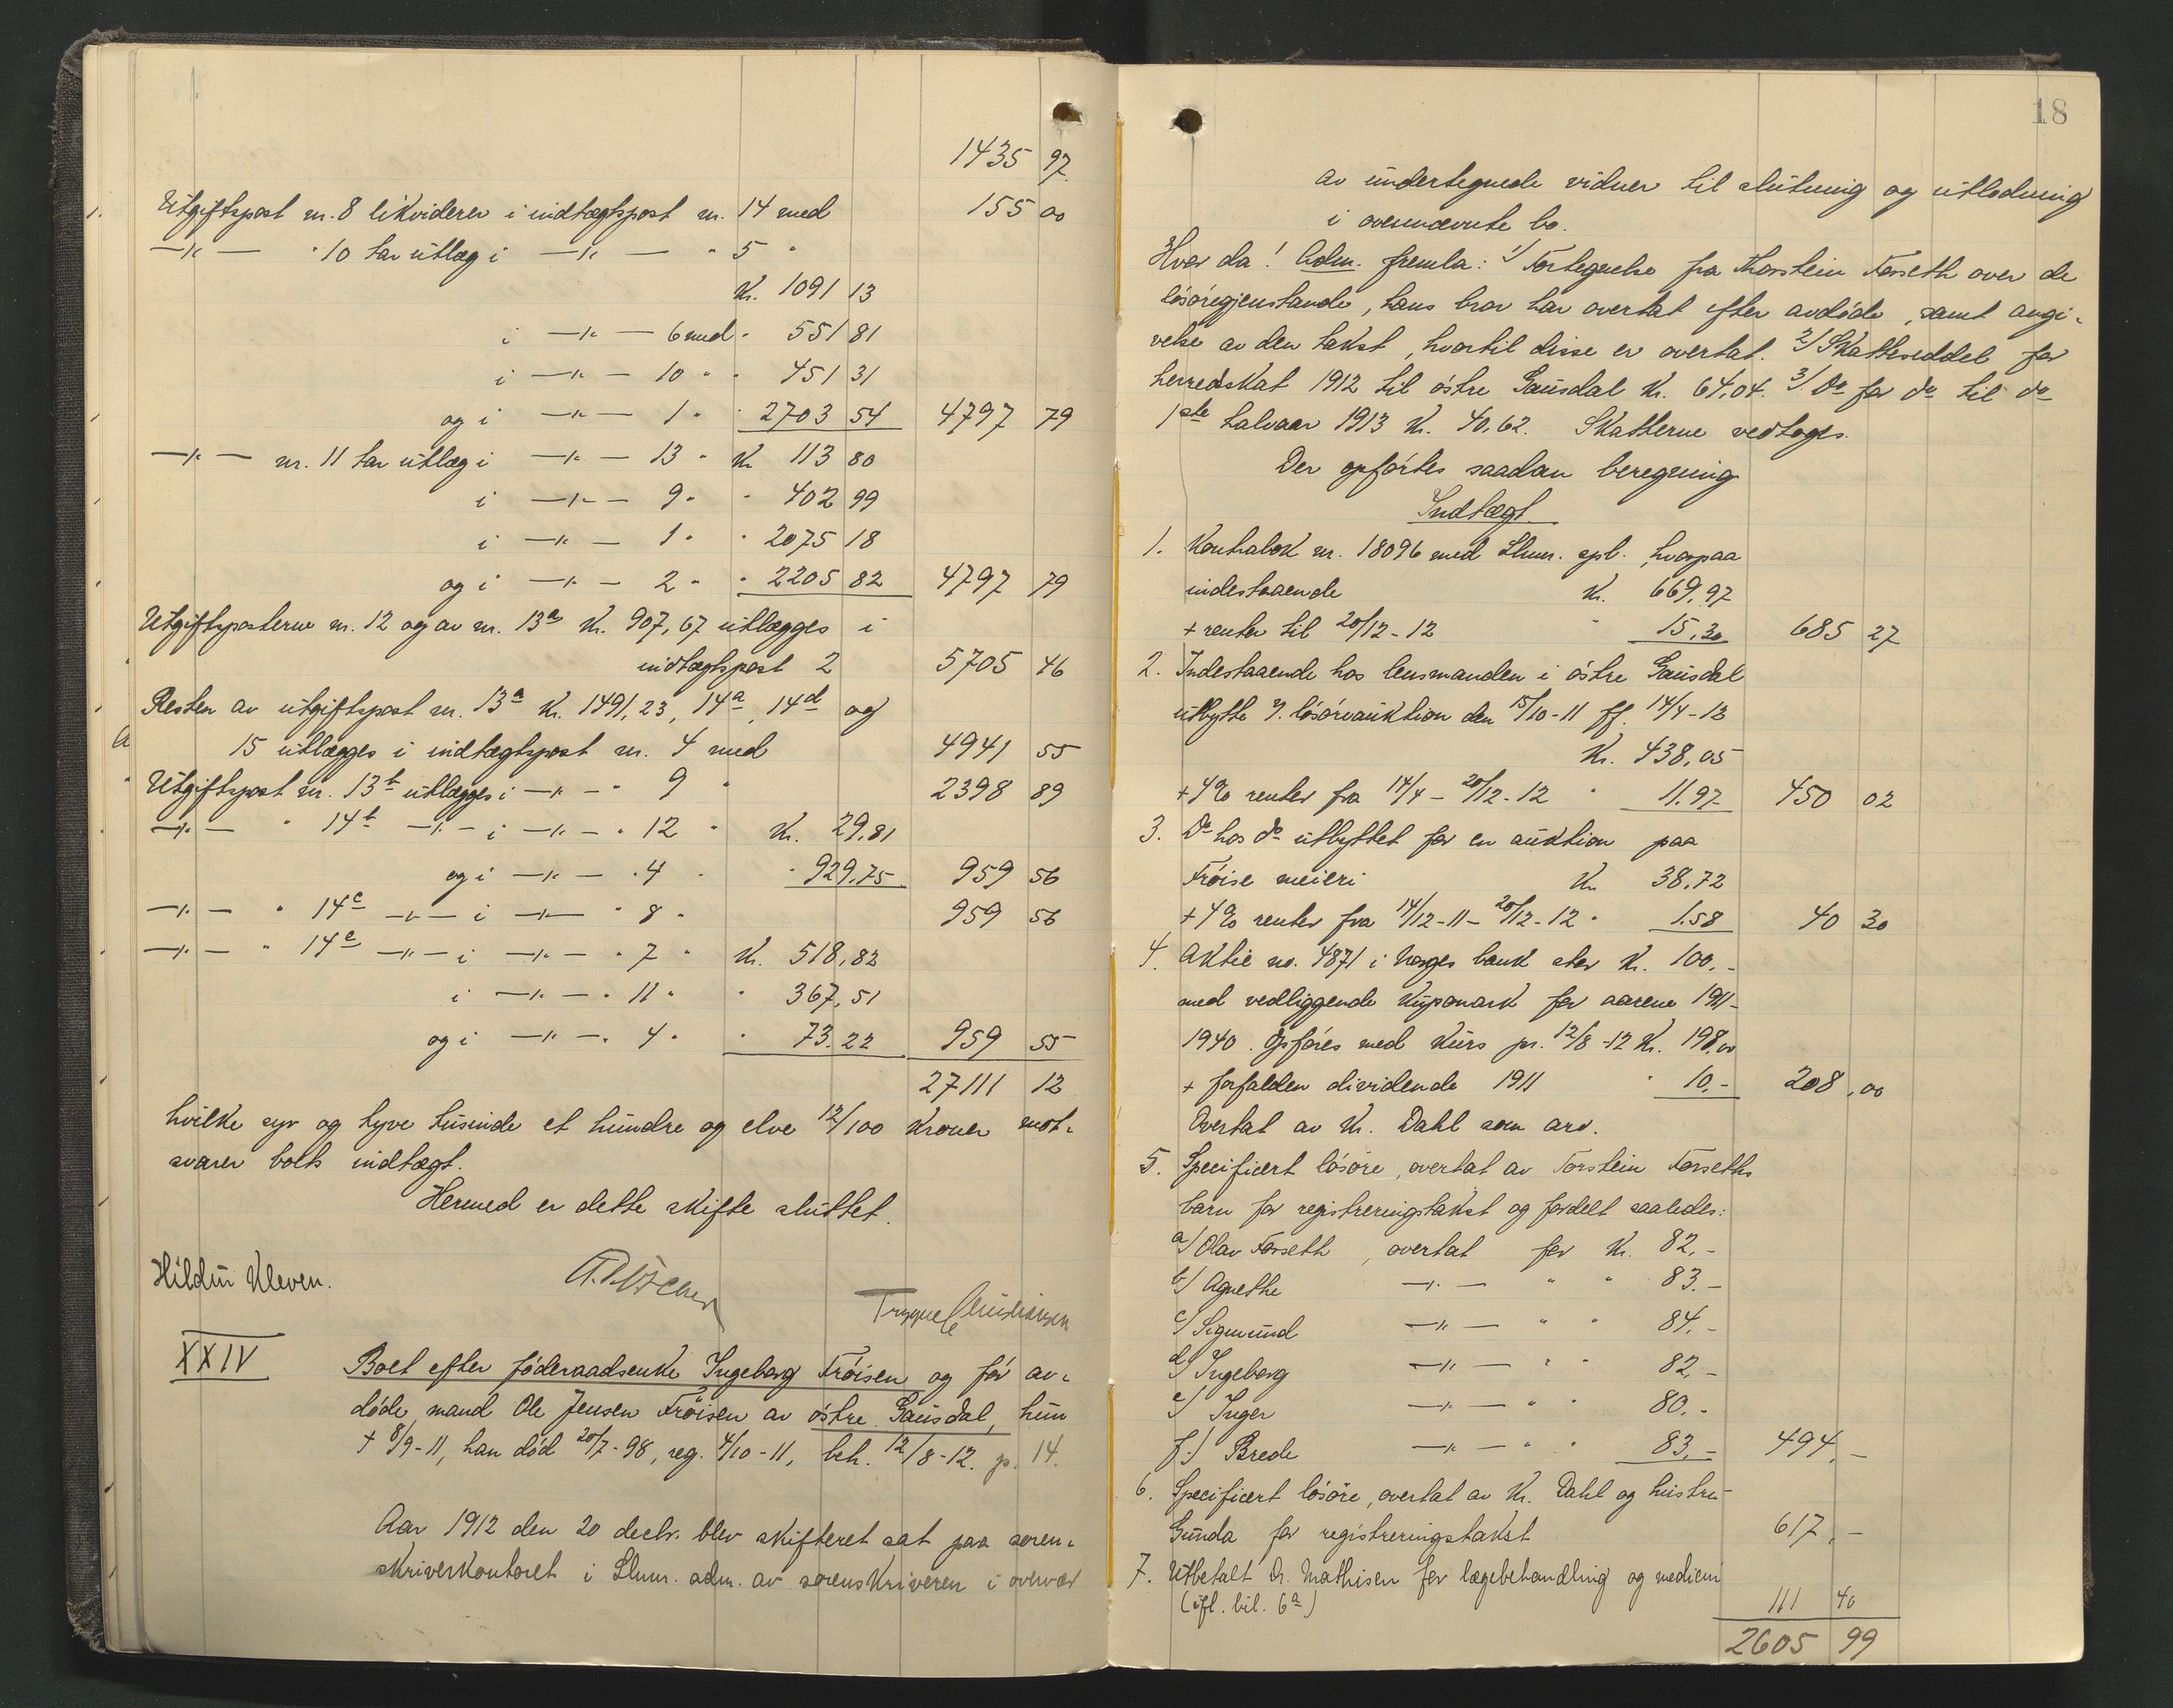 1435 97
Utgiftspost nr. 8 likviderer i indtægtspost nr. 14 med 155 00
—"— " 10 har utlæg i —"— " 5 "
Kr. 1091 13
i —"— 6 med " 551 81
i —"— 10 " " 451 31
og i —"— 1 " " 2703 54 4797 79
—"— nr. 11 har utlæg i —"— 13 " Kr 113 80
i —"— 9 " " 402 99
i —"— 1 " " 2075 18
og i —"— 2 " " 2205 82 4797 79
Utgiftsposterne nr. 12 og av nr. 13a Kr. 907,67 utlægges i
indtægtspost 2 5705 46
Resten av utgiftspost nr. 13a Kr. 1491,23, 14a, 14d og
15 utlægges i indtægtspost nr. 4 med 4941 55
Utgiftspost nr. 13b utlægges i —"— " 9 " 2398 89
—"— " 14b —"— i —"— " 12 " Kr. 29,81
og i —"— " 4 " " 929.75 959 56
—"— " 14c —"— i —"— " 8 " 959 56
—"— " 14e —"— i —"— " 7 " Kr. 518,82
i —"— " 11 " " 367,51
og i —"— " 4 " " 73.22 959 55
27111 12
hvilke syv og tyve tusinde et hundre og elve 12/100 kroner mot-
svarer boets indtægt.
Hermed er dette skifte sluttet.
Hildur Kleven.
Trygve Christiansen
XXIV
Boet efter føderaadsenke Ingeborg Frøisen og før av-
døde mand Ole Jensen Frøisen av østre Gausdal, hun
† 8/9-11, han død 20/7-98, reg. 4/10-11, beh. 12/8-12. p. 14.
Aar 1912 den 20 decbr. blev skifteret sat paa soren-
skriverkontoret i Lhmr. adm. av sorenskriveren i overvær
18
av undertegnede vidner til slutning og utlodning
i ovennævnte bo.
Hvor da! Adm. fremla: 1/ Fortegnelse fra Thorstein Forseth over de
løsøregjenstande, hans barn har overtat efter avdøde, samt angi-
velse av den takst, hvortil disse er overtat. 2/ Skatteseddel for
herredskat 1912 til østre Gausdal Kr. 64,04. 3/ Do for do til do
1ste halvaar 1913 Kr. 40,62. Skatterne vedtoges.
Der opførtes saadan beregning
Indtægt
1. Kontrabok nr. 18096 med Lhmr. spb., hvorpaa
indestaaende Kr. 669,97
+ renter til 20/12-12 " 15,30 685 27
2. Indestaaende hos lensmanden i østre Gausdal
utbytte f. løsøreauktion den 15/10-11 ff. 14/4-12
Kr. 438,05
+ 4% renter fra 14/4 - 20/12-12 " 11.97 450 02
3. Do hos do utbyttet for en auktion paa
Frøise meieri Kr 38,72
+ 4% renter fra 14/12-11 - 20/12-12 " 1.58 40 30
4. Aktie no. 4871 i Norges bank stor Kr. 100.-
med vedliggende kuponark for aarene 1911-
1940. Opføres med kurs pr. 12/8-12 Kr. 198,00
+ forfalden dividende 1911 " 10.- 208,00
Overtat av Kr. Dahl som arv.
5. Specificert løsøre, overtat av Torstein Forseths
barn for registreringstakst og fordelt saaledes:
a/ Olav Forseth, overtat for Kr. 82.-
b/ Agnethe —"— " " 83.-
c/ Sigmund —"— " " 84.-
d/ Ingeborg —"— " " 82.-
e/ Inger —"— " " 80.-
f.) Brede —"— " " 83.- 494.-
6. Specificert løsøre, overtat av Kr. Dahl og hustru
Gunda for registreringstakst 617.-
7. Utbetalt Dr. Mathisen for lægebehandling og medicin
(ifl. bil. 6a) 111 40
2605 99